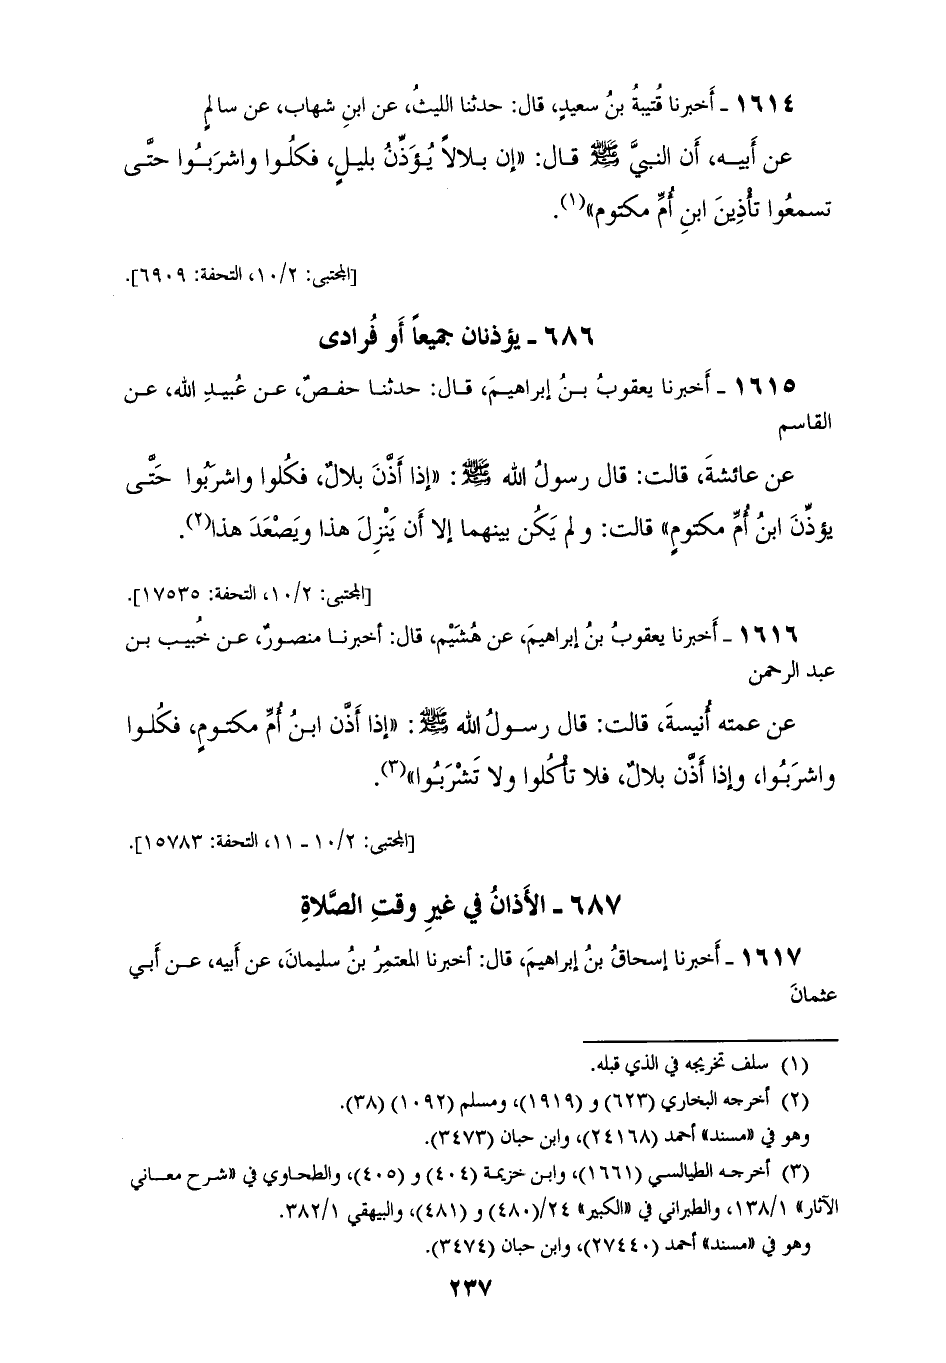 ١٦١٤ ـ أَخبرنا قُتيبةُ بنُ سعيدٍ، قال: حدثنا الليثُ، عن ابنِ شهاب، عن سالمٍ
عن أَبيه، أَن النبيَّ ﷺ قال: «إن بلالاً يُؤذِّنُ بليلٍ، فكلُوا واشربُوا حتَّى
تسمعُوا تأْذِينَ ابنِ أُمِّ مكتوم»(١).
[المجتبى: ١٠/٢، التحفة: ٦٩٠٩].
٦٨٦ ـ يؤذنان جميعاً أَو فُرادى
١٦١٥ ـ أَخبرنا يعقوبُ بنُ إبراهيمَ، قال: حدثنا حفصٌ، عن عُبيدِ الله، عن
القاسم
عن عائشةَ، قالت: قال رسولُ الله ﷺ: «إذا أَذَّنَ بلالٌ، فكُلوا واشرَبُوا حَتَّى
يؤذِّنَ ابنُ أُمِّ مكتومٍ» قالت: ولم يَكُن بينهما إلا أَن يَنْزِلَ هذا ويَصْعَدَ هذا(٢).
[المجتبى: ١٠/٢، التحفة: ١٧٥٣٥].
١٦١٦ ـ أَخبرنا يعقوبُ بنُ إبراهيمَ، عن هُشَيْم، قال: أخبرنا منصورٌ، عن خُبيب بن
عبد الرحمن
عن عمته أُنيسةَ، قالت: قال رسولُ الله ﷺ: «إذا أَذَّن ابنُ أُمِّ مكتومٍ، فكُلوا
واشرَبُوا، وإذا أَذَّن بلالٌ، فلا تأْكُلوا ولا تَشْرَبُوا»(٣).
[المجتبى: ١٠/٢ ـ ١١، التحفة: ١٥٧٨٣].
٦٨٧ ـ الأَذانُ في غيرِ وقتِ الصَّلاةِ
١٦١٧ ـ أَخبرنا إسحاقُ بنُ إبراهيمَ، قال: أخبرنا المعتمِرُ بنُ سليمانَ، عن أَبيه، عن أَبي
عثمانَ
(١) سلف تخريجه في الذي قبله.
(٢) أخرجه البخاري (٦٢٣) و (١٩١٩)، ومسلم (١٠٩٢) (٣٨).
وهو في «مسند» أحمد (٢٤١٦٨)، وابن حبان (٣٤٧٣).
(٣) أخرجه الطيالسي (١٦٦١)، وابن خزيمة (٤٠٤) و (٤٠٥)، والطحاوي في «شرح معاني
الآثار» ١٣٨/١، والطبراني في «الكبير» ٢٤/(٤٨٠) و (٤٨١)، والبيهقي ٣٨٢/١.
وهو في «مسند» أحمد (٢٧٤٤٠)، وابن حبان (٣٤٧٤).
٢٣٧